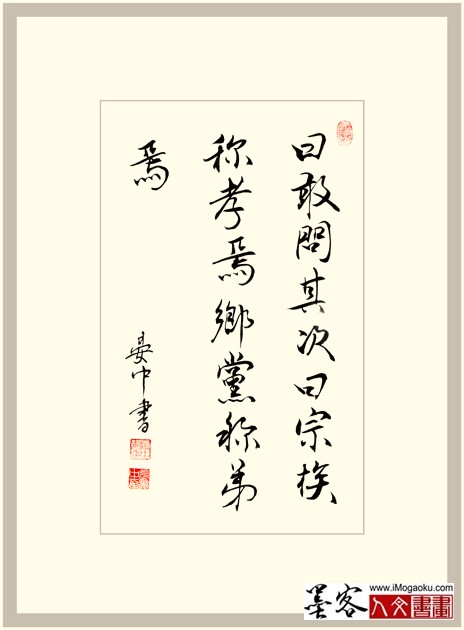 曰敢問其次曰宗族
称孝焉鄉黨称弟
焉
晏中書
墨客
www.iMogaoku.com
人文書畫